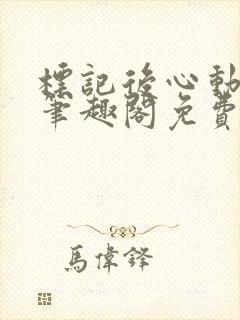 標記後心動
筆趣閣免費
馬偉鋒